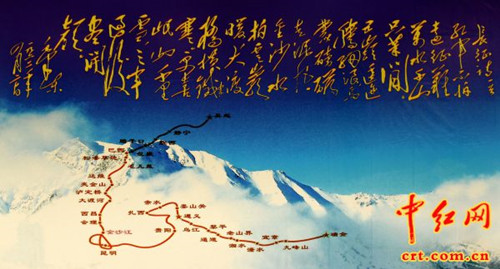 长征诗一首
红军不怕
远征难
万水千山
只等闲
五岭逶迤
腾细浪乌
蒙磅礴
走泥丸
金沙水
拍云崖
暖大渡
桥横铁
索寒更喜
岷山千里
雪三军
过后
尽开
颜
毛泽东
腊子口
巴西
松潘草地
夹金山
泸定桥
大渡河
西昌
会理
金沙江
昆明
赤水
扎西
贵阳
娄山关
遵义
乌江
黎平
通道
老山界
湘水
宜章
潇水
瑞金
中红网
crt.com.cn